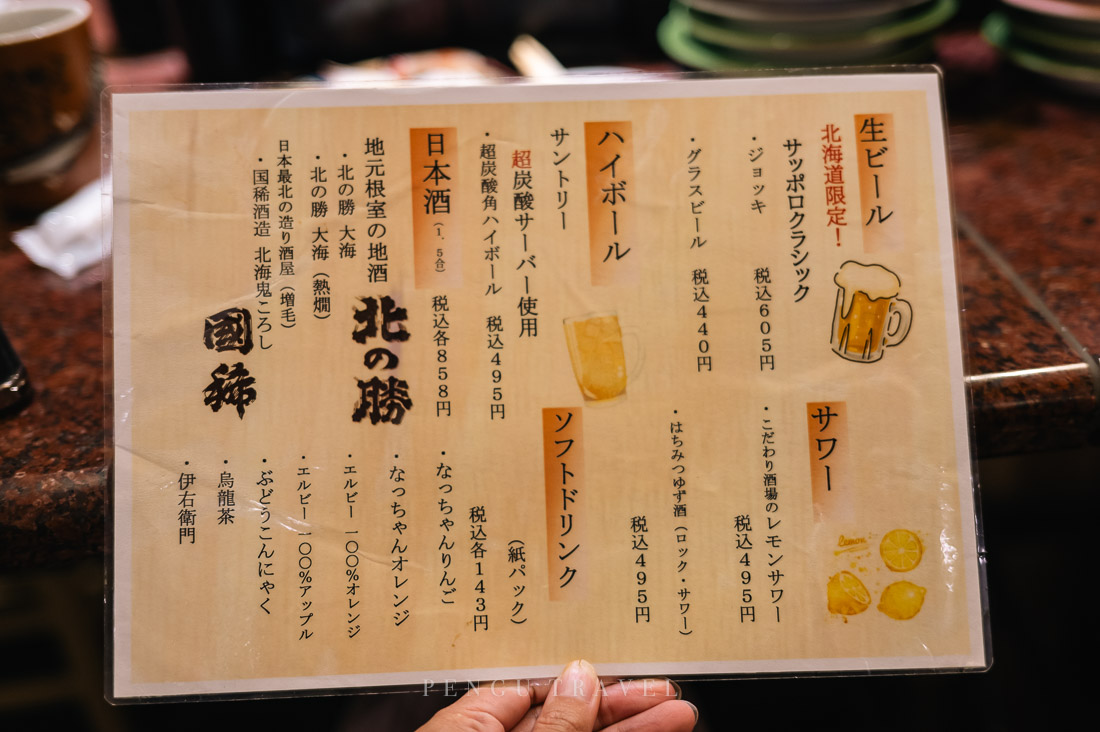 生ビール
北海道限定！
サッポロクラシック
・ジョッキ　税込６０５円
・グラスビール　税込４４０円
ハイボール
サントリー
超炭酸サーバー使用
・超炭酸角ハイボール　税込４９５円
日本酒（１．５合）　税込各８５８円
地元根室の地酒
北の勝
・北の勝 大海
・北の勝 大海（熱燗）
日本最北の造り酒屋（増毛）
・国稀酒造 北海鬼ころし
國稀
サワー
・こだわり酒場のレモンサワー
税込４９５円
・はちみつゆず酒（ロック・サワー）
税込４９５円
ソフトドリンク
（紙パック）
税込各１４３円
・なっちゃんりんご
・なっちゃんオレンジ
・エルビー 一〇〇％オレンジ
・エルビー 一〇〇％アップル
・ぶどうこんにゃく
・烏龍茶
・伊右衛門
Lemon
PENGU TRAVEL